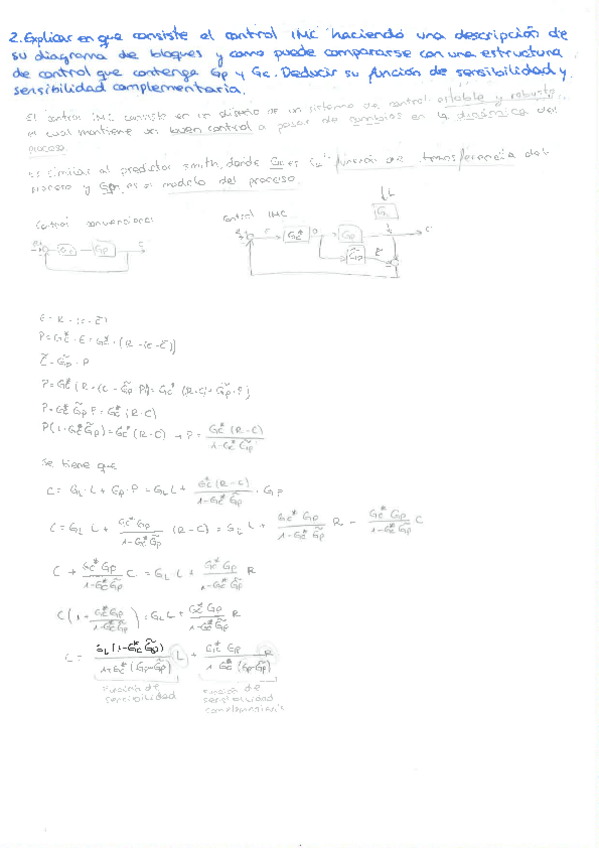 2. Explicar en que consiste el control IMC haciendo una descripción de
su diagrama de bloques y como puede compararse con una estructura
de control que contenga Gp y Gc. Deducir su función de sensibilidad y
sensibilidad complementaria.
El control IMC consiste en un diseño de un sistema de control estable y robusto,
el cual mantiene un buen control a pesar de cambios en la dinámica del
proceso.
es similar al predictor smith, donde es la función de transferencia del
proceso y es el modelo del proceso.
Control convencional
Control IMC
L
GL
R E Gc* P Gp C
G̃p C̃
Gc Gp C
E = R - (C - C̃)
P = Gc* · E = Gc* · (R - (C - C̃))
C̃ = G̃p · P
P = Gc* (R - (C - G̃p P)) = Gc* (R - C + G̃p · P)
P - Gc* G̃p P = Gc* (R - C)
P(1 - Gc* G̃p) = Gc* (R - C) → P = Gc* (R - C) / 1 - Gc* G̃p
Se tiene que
C = GL · L + Gp · P = GL L + Gc* (R - C) / 1 - Gc* G̃p · Gp
C = GL L + Gc* Gp / 1 - Gc* G̃p (R - C) = GL L + Gc* Gp / 1 - Gc* G̃p R - Gc* Gp / 1 - Gc* G̃p C
C + Gc* Gp / 1 - Gc* G̃p C = GL · L + Gc* Gp / 1 - Gc* G̃p R
C (1 + Gc* Gp / 1 - Gc* G̃p) = GL L + Gc* Gp / 1 - Gc* G̃p R
C = GL (1 - Gc* G̃p) / 1 + Gc* (Gp - G̃p) L + Gc* Gp / 1 + Gc* (Gp - G̃p) R
función de sensibilidad
función de sensibilidad complementaria